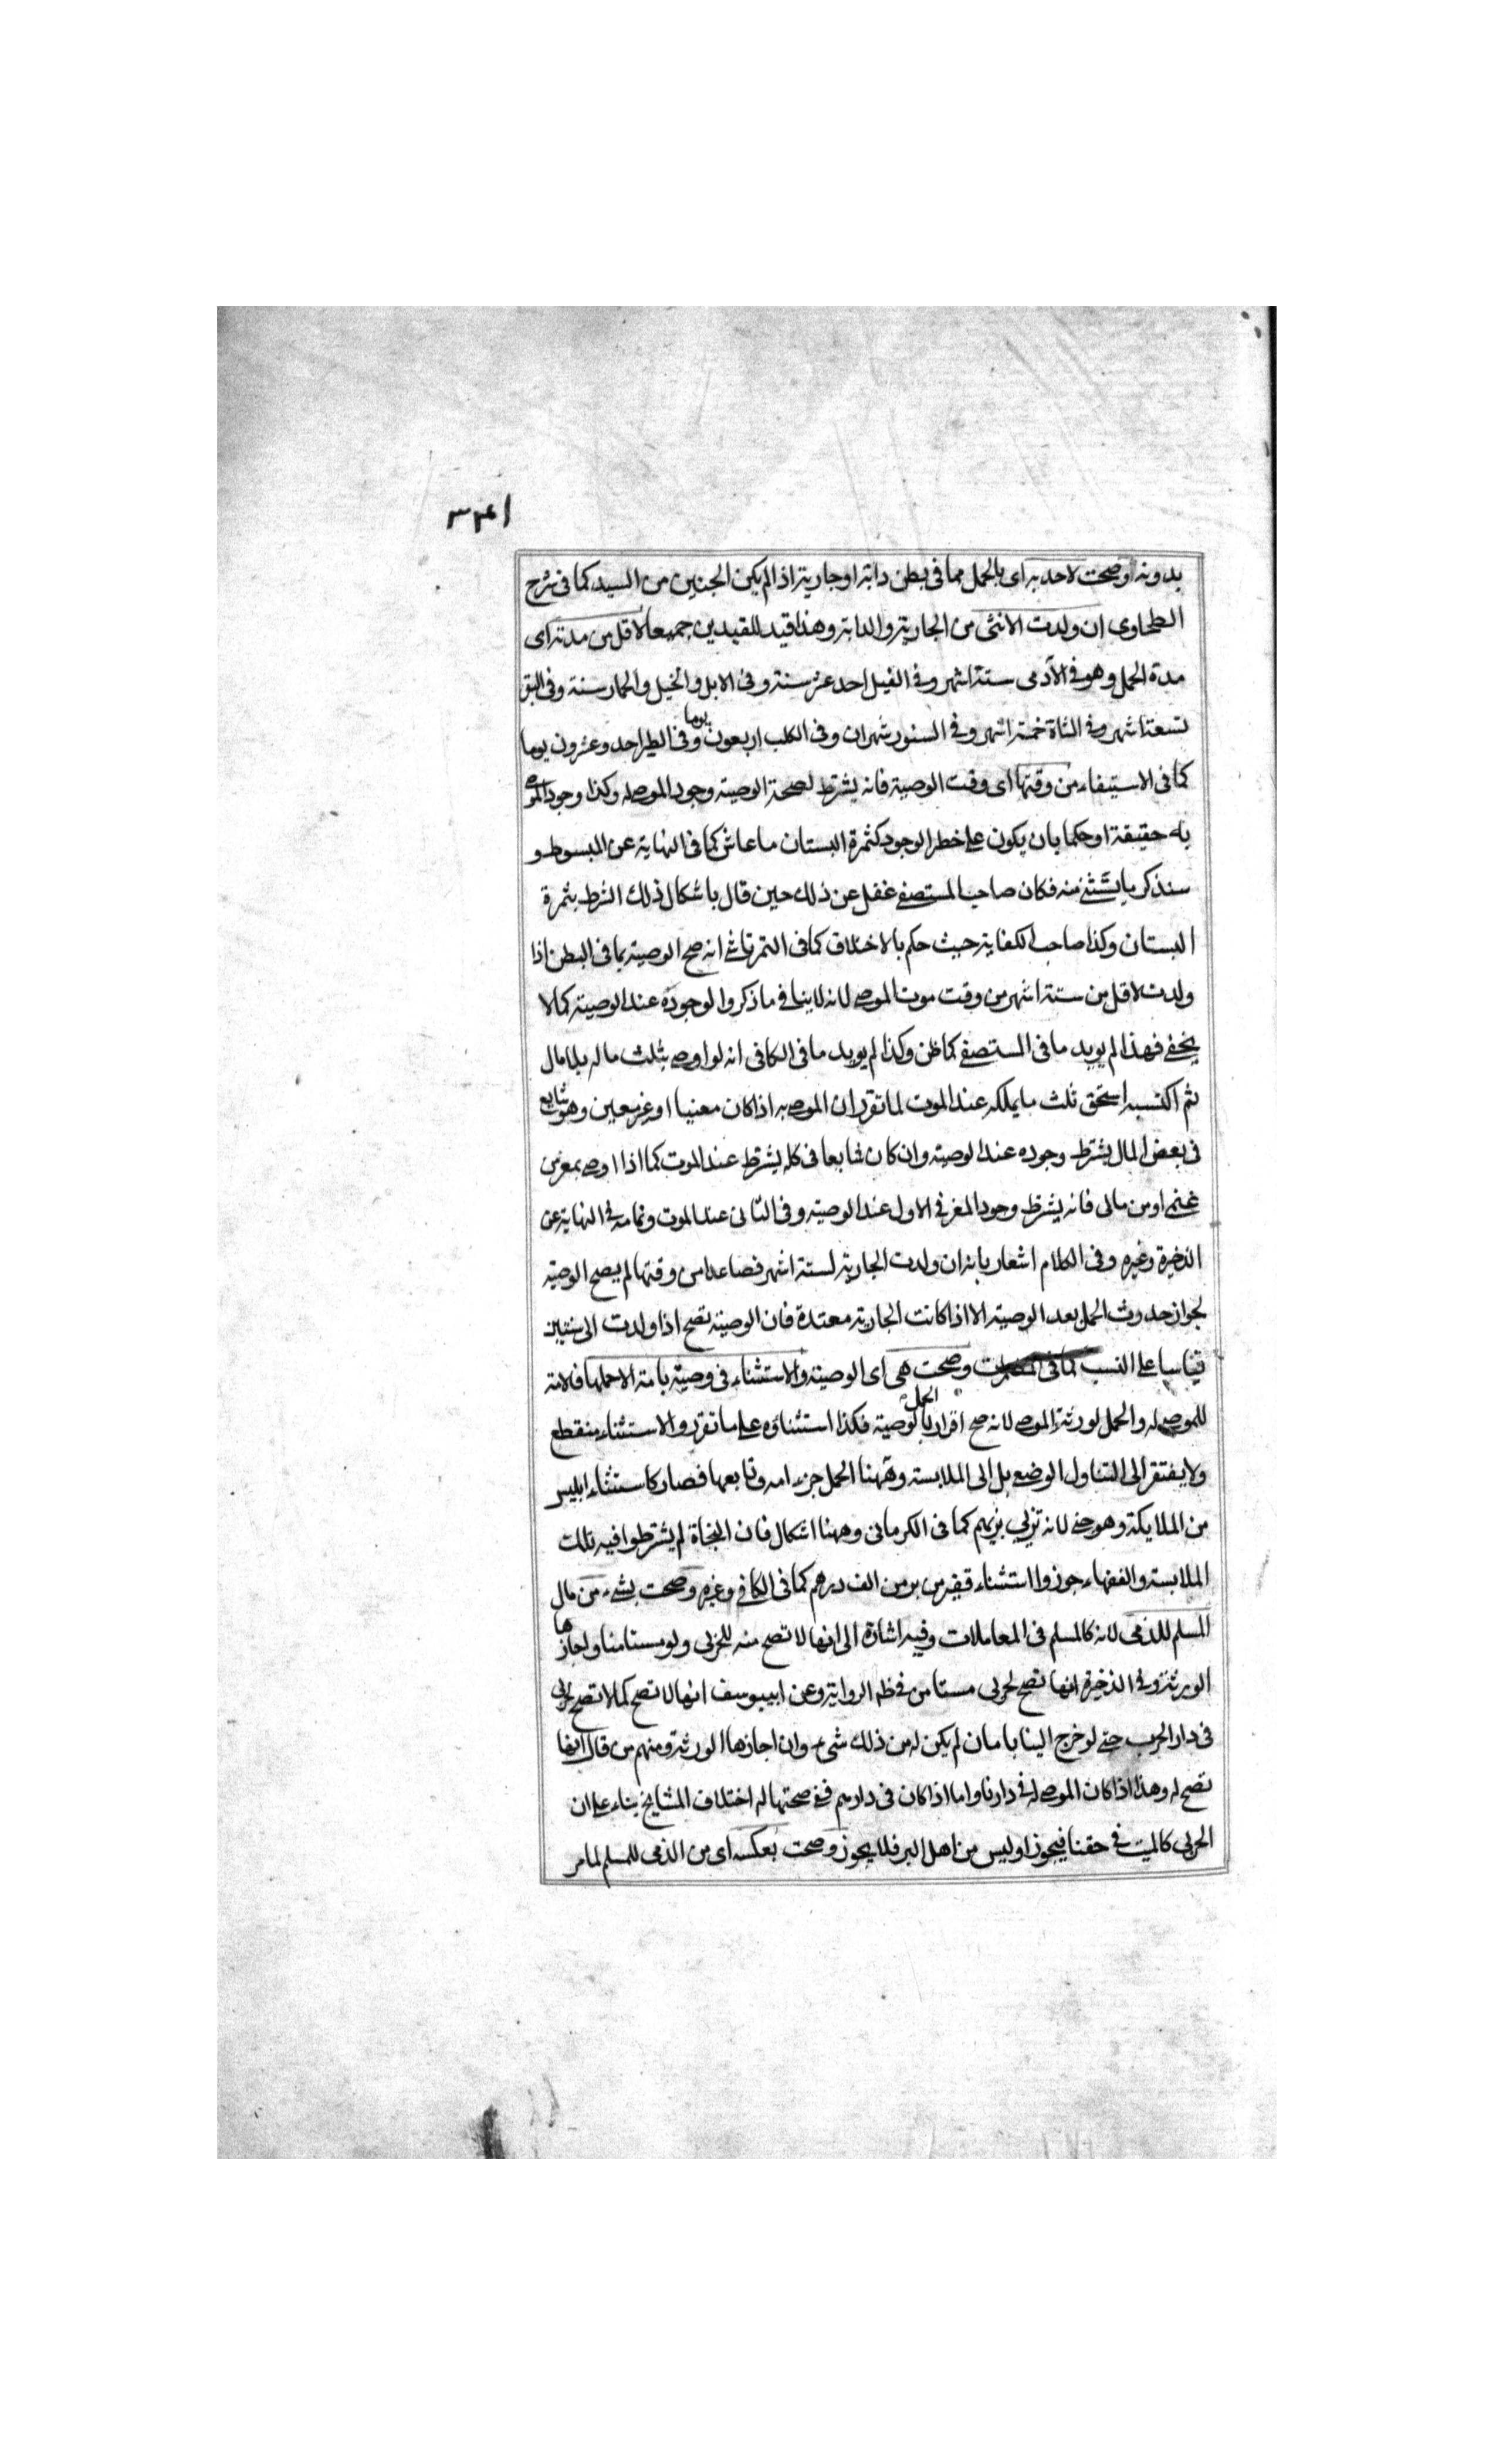 ٣٤١
بدونه او صحت لاحد به اى بالحمل مما فى بطن دابة او جارية اذا لم يكن الجنين من السيد كما فى شرح
الطحاوى ان ولدت الانثى من الجارية والدابة وهذا قيد للقيدين جميعا لاقل من مدته اى
مدة الحمل وهو فى الآدمى ستة اشهر وفى الفيل احد عشر سنة وفى الابل والخيل والحمار سنة وفى البقر
تسعة اشهر وفى الشاة خمسة اشهر وفى السنور شهران وفى الكلب اربعون يوما وفى الطير احد وعشرون يوما
كما فى الاستيفاء من وقتها اى وقت الوصية فانه يشترط لصحة الوصية وجود الموصى له وكذا وجود الموصى
به حقيقة او حكما بان يكون على خطر الوجود كثمرة البستان ما عاش كما فى النهاية عن المبسوط و
سنذكر ما يستثنى منه فكان صاحب المستصفى غفل عن ذلك حين قال باشكال ذلك الشرط بثمرة
البستان وكذا صاحب الكفاية حيث حكم بالاختلاف كما فى التمرتاشى انه صح الوصية بما فى البطن اذا
ولدت لاقل من ستة اشهر من وقت موت الموصى لانه لاينافى ما ذكروا لوجوده عند الوصية كما لا
يخفى فهذا لم يويد ما فى المستصفى كما ظن وكذا لم يويد ما فى الكافى انه لو اوصى بثلث ماله بلا مال
ثم اكتسبه استحق ثلث ما يملكه عند الموت لما تقرر ان الموصى به اذا كان معنيا او غير معين وهو شايع
فى بعض المال يشترط وجوده عند الوصية وان كان شايعا فى كله يشترط عند الموت كما اذا اوصى بمعز من
غنمى او من مالى فانه يشترط وجود المعز فى الاول عند الوصية وفى الثانى عند الموت وتمامه فى النهاية عن
الذخيرة وغيره وفى الكلام اشعار بانه ان ولدت الجارية لستة اشهر فصاعدا من وقتها لم يصح الوصية
لجواز حدوث الحمل بعد الوصية الا اذا كانت الجارية معتدة فان الوصية تصح اذا ولدت الى سنتين
قياسا على النسب كما فى المضمرات وصحت هى اى الوصية والاستثناء فى وصية بامة الا حملها فلامة
للموصى له والحمل لورثة الموصى لانه صح اقرار بالحمل لوصية فكذا استثناؤه على ما تقرر والاستثناء منقطع
ولا يفتقر الى التناول الوضع بل الى الملابسة وههنا الحمل جزء امه وتابعها فصار كاستثناء ابليس
من الملايكة وهو جنى لانه تزيى بزيهم كما فى الكرمانى وههنا اشكال فان النحاة لم يشترطوا فيه تلك
الملابسة والفقهاء جوزوا استثناء قفيز من بر من الف درهم كما فى الكافى وغيره وصحت بشىء من مال
المسلم للذمى لانه كالمسلم فى المعاملات وفيه اشارة الى انها لا تصح منه للحربى ولو مستامنا ولو اجازها
الورثة وفى الذخيرة انها تصح لحربى مستامن فى ظه الرواية وعن ابييوسف انها لا تصح كما لا تصح لحربى
فى دار الحرب حتى لو خرج الينا بامان لم يكن له من ذلك شىء وان اجازها الورثة ومنهم من قال انها
تصح له وهذا اذا كان الموصى له فى دارنا واما اذا كان فى دارهم ففى صحتها له اختلاف المشايخ بناء على ان
الحربى كالميت فى حقنا فيجوز او ليس من اهل البر فلا يجوز وصحت بعكسه اى من الذمى للمسلم لما مر